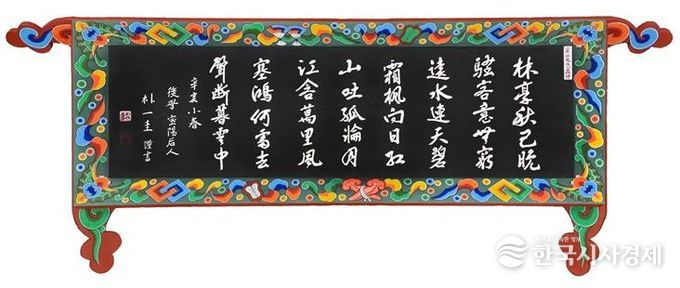 林亭秋已晚
騷客意無窮
遠水連天碧
霜楓向日紅
山吐孤輪月
江含萬里風
塞鴻何處去
聲斷暮雲中
辛亥小春
後學 密陽后人
朴一圭 謹書
한국시사경제